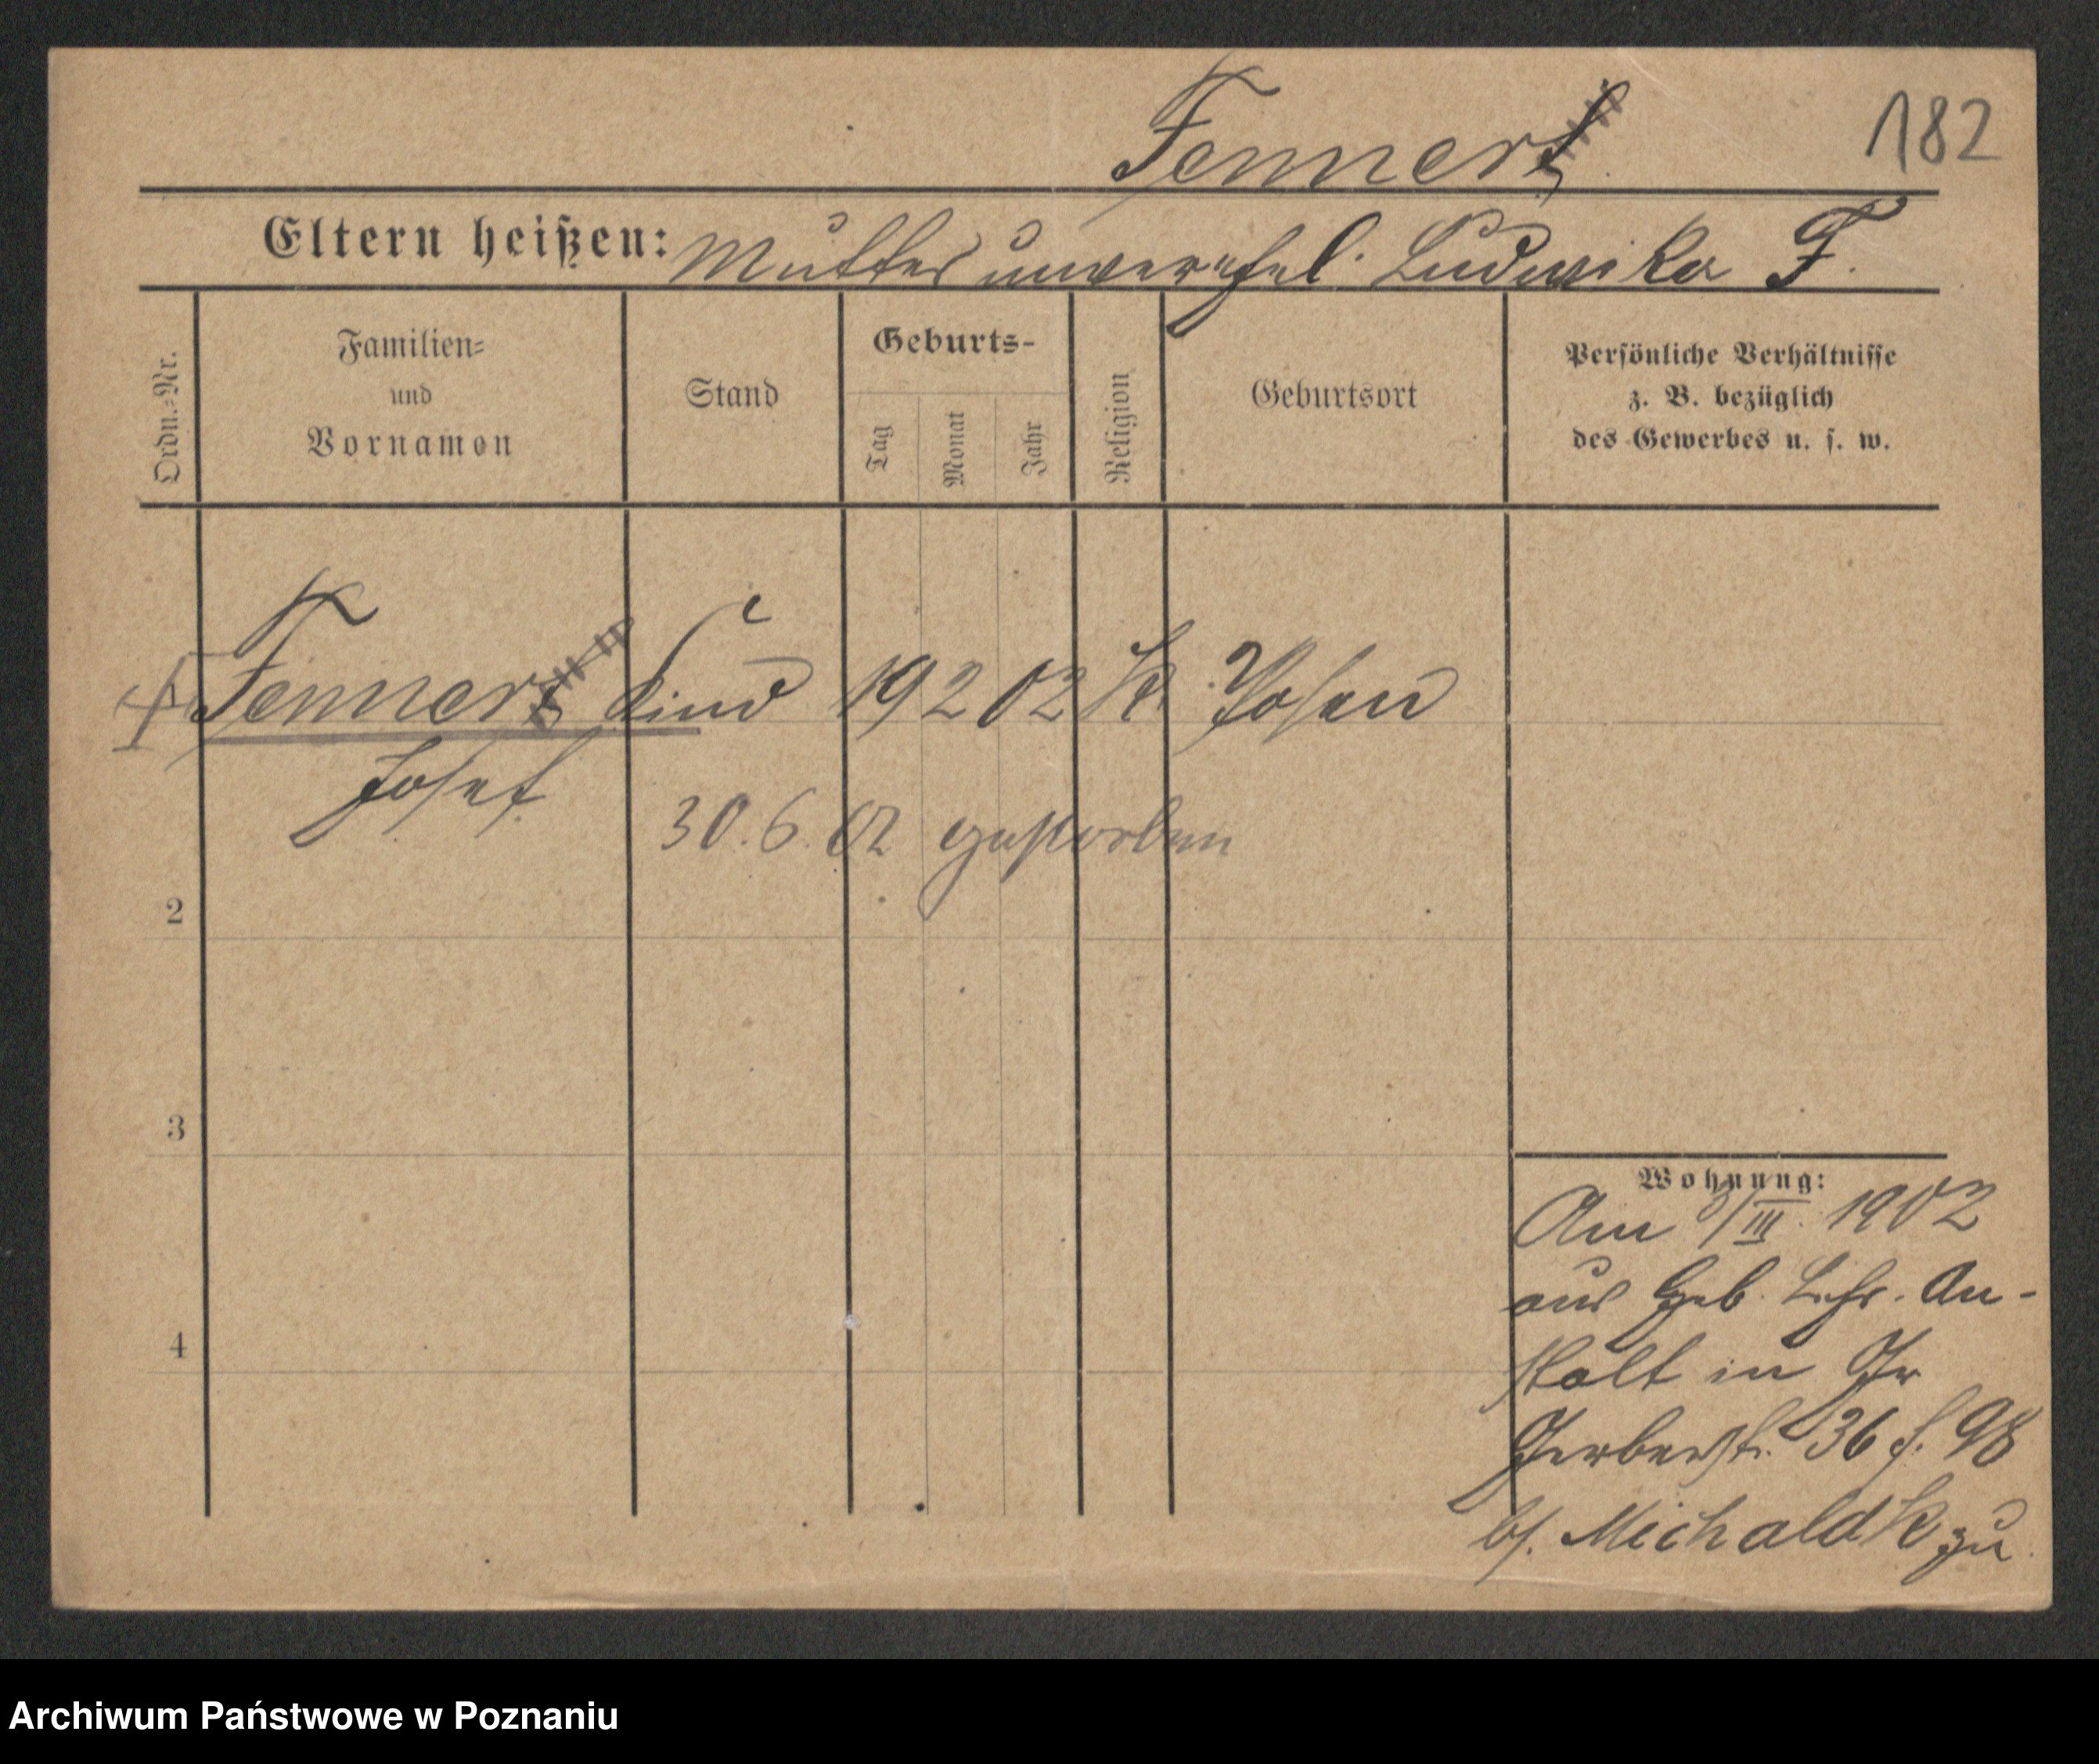 Fenner
182
Eltern heißen: Mutter unverehel. Ludwika F.
Ordn.=Nr.
Familien=
und
Vornamen
Stand
Geburts-
Tag
Monat
Jahr
Religion
Geburtsort
Persönliche Verhältnisse
z. B. bezüglich
des Gewerbes u. s. w.
Fenner Kind 19 2 02 K. Posen
Josef
30.6.02 gestorben
2
3
4
Wohnung:
Am /III. 1902
aus Geb. Lehr. An-
stalt in Gr
Gerberstr. 36 f. 98
bf. Michalak zu
Archiwum Państwowe w Poznaniu